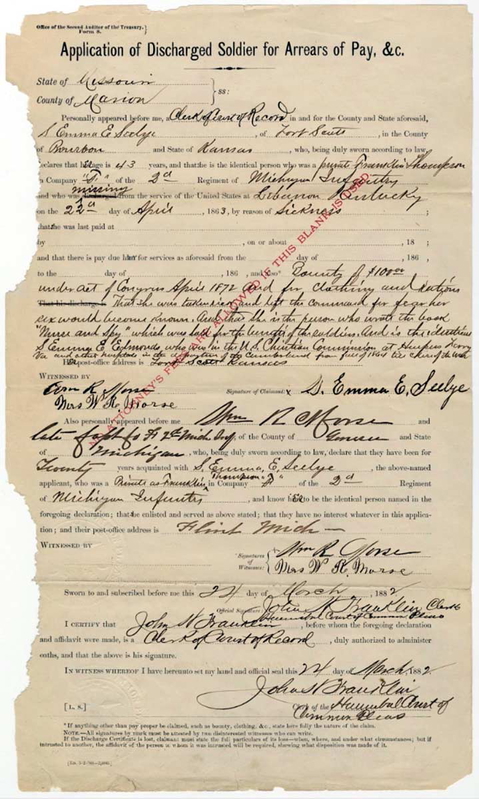 Office of the Second Auditor of the Treasury.
Form 8.
Application of Discharged Soldier for Arrears of Pay, &c.
State of Missouri
County of Marion } ss:
Personally appeared before me, a Clerk of Court of Record, in and for the County and State aforesaid,
S. Emma E. Seelye, of Fort Scott, in the County
of Bourbon and State of Kansas, who, being duly sworn according to law,
declares that is 43 years, and that he is the identical person who was a private Franklin Thompson
in Company "F" of the 2d Regiment of Michigan Infantry
missing
and who was discharged from the service of the United States at Lebanon Kentucky
on the 22d day of April 1863, by reason of Sickness;
that was last paid at
by , on or about , 18 ;
and that there is pay due for services as aforesaid from the day of , 186
to the day of , 186 , and also Bounty of $100.00
under act of Congress April 1872 and for clothing and rations
That his discharge That she was taken sick and left the command for fear her
sex would become known. And that she is the person who wrote the book
"Nurse and Spy" which was sold for the benefit of the soldiers. And is the identical
S. Emma E. Edmonds, who was in the U.S. Christian Commission at Harpers Ferry
Va and other hospitals in the department of the Cumberland from fall of 1864 till
post-office address is Fort Scott Kansas
NO ATTORNEY'S FEES ARE ALLOWED IF THIS BLANK IS USED.
WITNESSED BY
Wm R Morse
Mrs W. R. Morse
Signature of Claimant: S. Emma E. Seelye
Also personally appeared before me Wm R Morse and
late Capt Co F 2d Mich Inf, of the County of Genesee and State
of Michigan, who, being duly sworn according to law, declare that they have been for
Twenty years acquainted with S. Emma, E. Seelye, the above-named
applicant, who was a Private as Franklin Thompson in Company "F" of the 2d Regiment
of Michigan Infantry, and know to be the identical person named in the
foregoing declaration; that he enlisted and served as above stated; that they have no interest whatever in this
application; and their post-office address is Flint Mich
WITNESSED BY
Signatures of Witnesses: { Wm R Morse
Mrs W. R. Morse
Sworn to and subscribed before me this 24 day of March, 1882
Official Signature: John N Franklin Clerk
Hannibal Court of Common Pleas
I CERTIFY that John N Franklin, before whom the foregoing declaration
and affidavit were made, is a Clerk of Court of Record, duly authorized to administer
oaths, and that the above is his signature.
IN WITNESS WHEREOF I have hereunto set my hand and official seal this 24 day of March, 1882
John N Franklin
[L. S.] Clerk of the Hannibal Court of
Common Pleas
* If anything other than pay proper be claimed, such as bounty, clothing, &c., state here fully the nature of the claim.
NOTE.—All signatures by mark must be attested by two disinterested witnesses who can write.
If the Discharge Certificate is lost, claimant must state the full particulars of its loss—when, where, and under what circumstances; but if
intrusted to another, the affidavit of the person to whom it was intrusted will be required, showing what disposition was made of it.